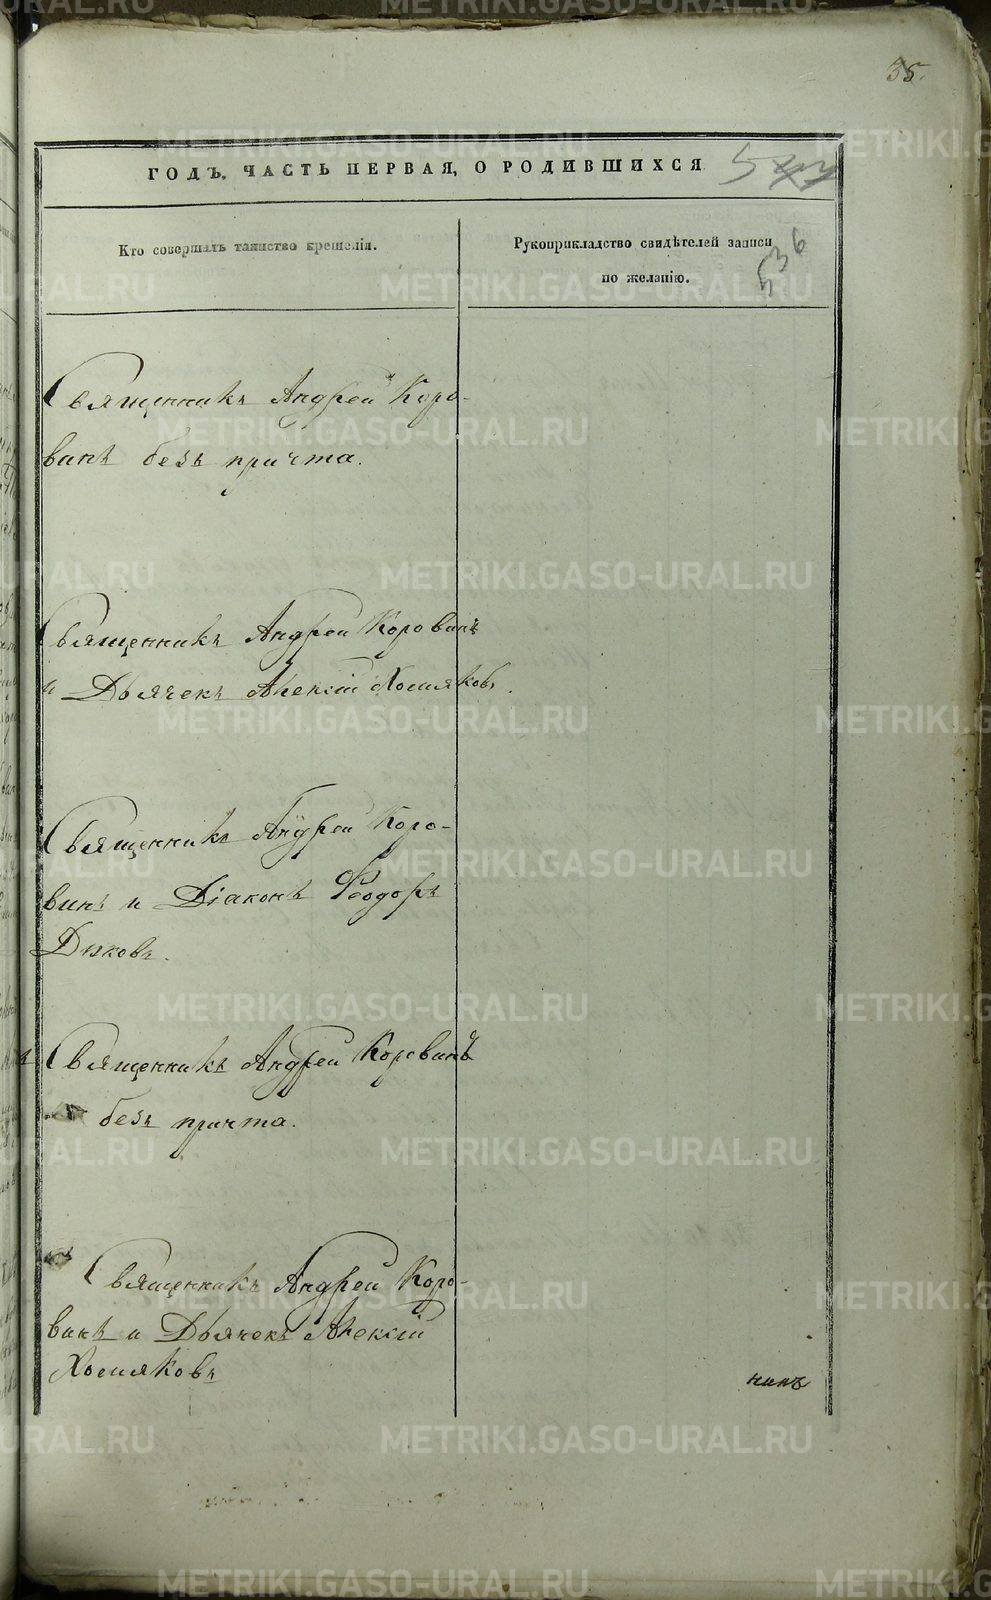 35.
ГОДЪ. ЧАСТЬ ПЕРВАЯ, О РОДИВШИХСЯ
Кто совершалъ таинство крещенія.
Рукоприкладство свидѣтелей записи
по желанію.
536
Священникъ Андрей Коро-
винъ безъ причта.
Священникъ Андрей Коровинъ
и Дьячекъ Алексій Хомяковъ.
Священникъ Андрей Коро-
винъ и Діаконъ Ѳеодоръ
Дьяковъ.
Священникъ Андрей Коровинъ
безъ причта.
Священникъ Андрей Коро-
винъ и Дьячекъ Алексій
Хомяковъ
METRIKI.GASO-URAL.RU